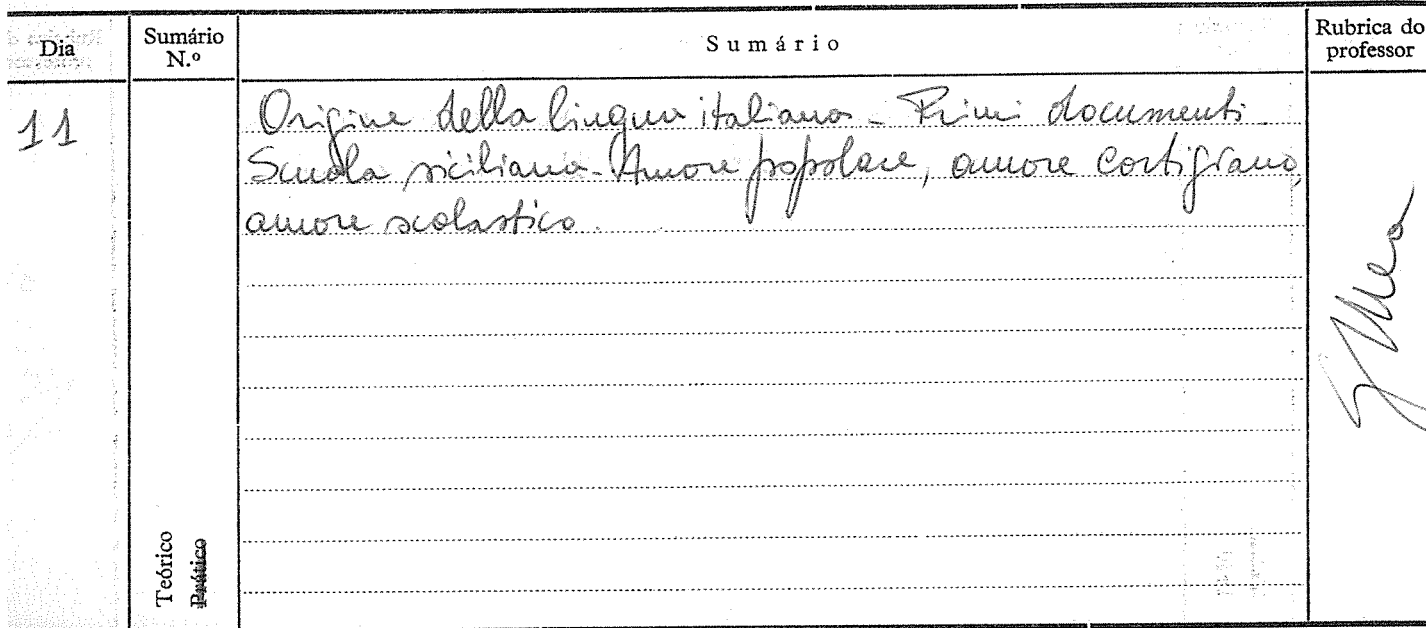 Dia Sumário N.º Sumário Rubrica do professor
11 Origine della lingua italiana - Primi documenti -
Scuola siciliana - Amore popolare, amore cortigiano,
amore scolastico.
Teórico
Prático